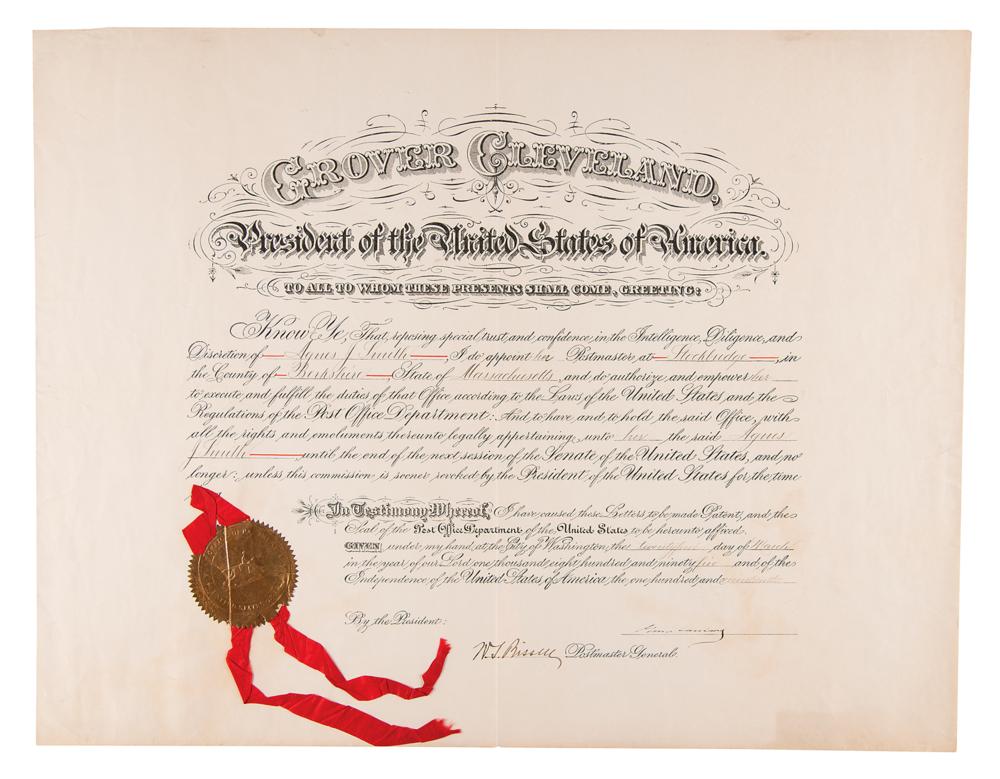 GROVER CLEVELAND,
President of the United States of America.
TO ALL TO WHOM THESE PRESENTS SHALL COME, GREETING:
Know Ye, That, reposing special trust and confidence in the Intelligence, Diligence, and
Discretion of Agnes J Smith, I do appoint her Postmaster at Stockbridge, in
the County of Berkshire, State of Massachusetts, and do authorize and empower her
to execute and fulfill the duties of that Office according to the Laws of the United States and the
Regulations of the Post Office Department: And to have and to hold the said Office, with
all the rights and emoluments thereunto legally appertaining, unto her the said Agnes
J Smith until the end of the next session of the Senate of the United States, and no
longer; unless this commission is sooner revoked by the President of the United States for the time
In Testimony Whereof, I have caused these Letters to be made Patent, and the
Seal of the Post Office Department of the United States to be hereunto affixed.
GIVEN under my hand, at the City of Washington, the day of March
in the year of our Lord one thousand eight hundred and ninety five and of the
Independence of the United States of America, the one hundred and nineteenth
By the President:
W.S. Bissell Postmaster General.